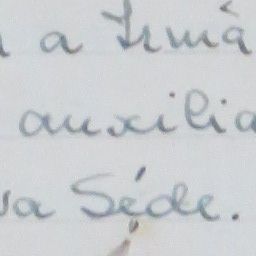 a Irmã
auxilia
va Séde.